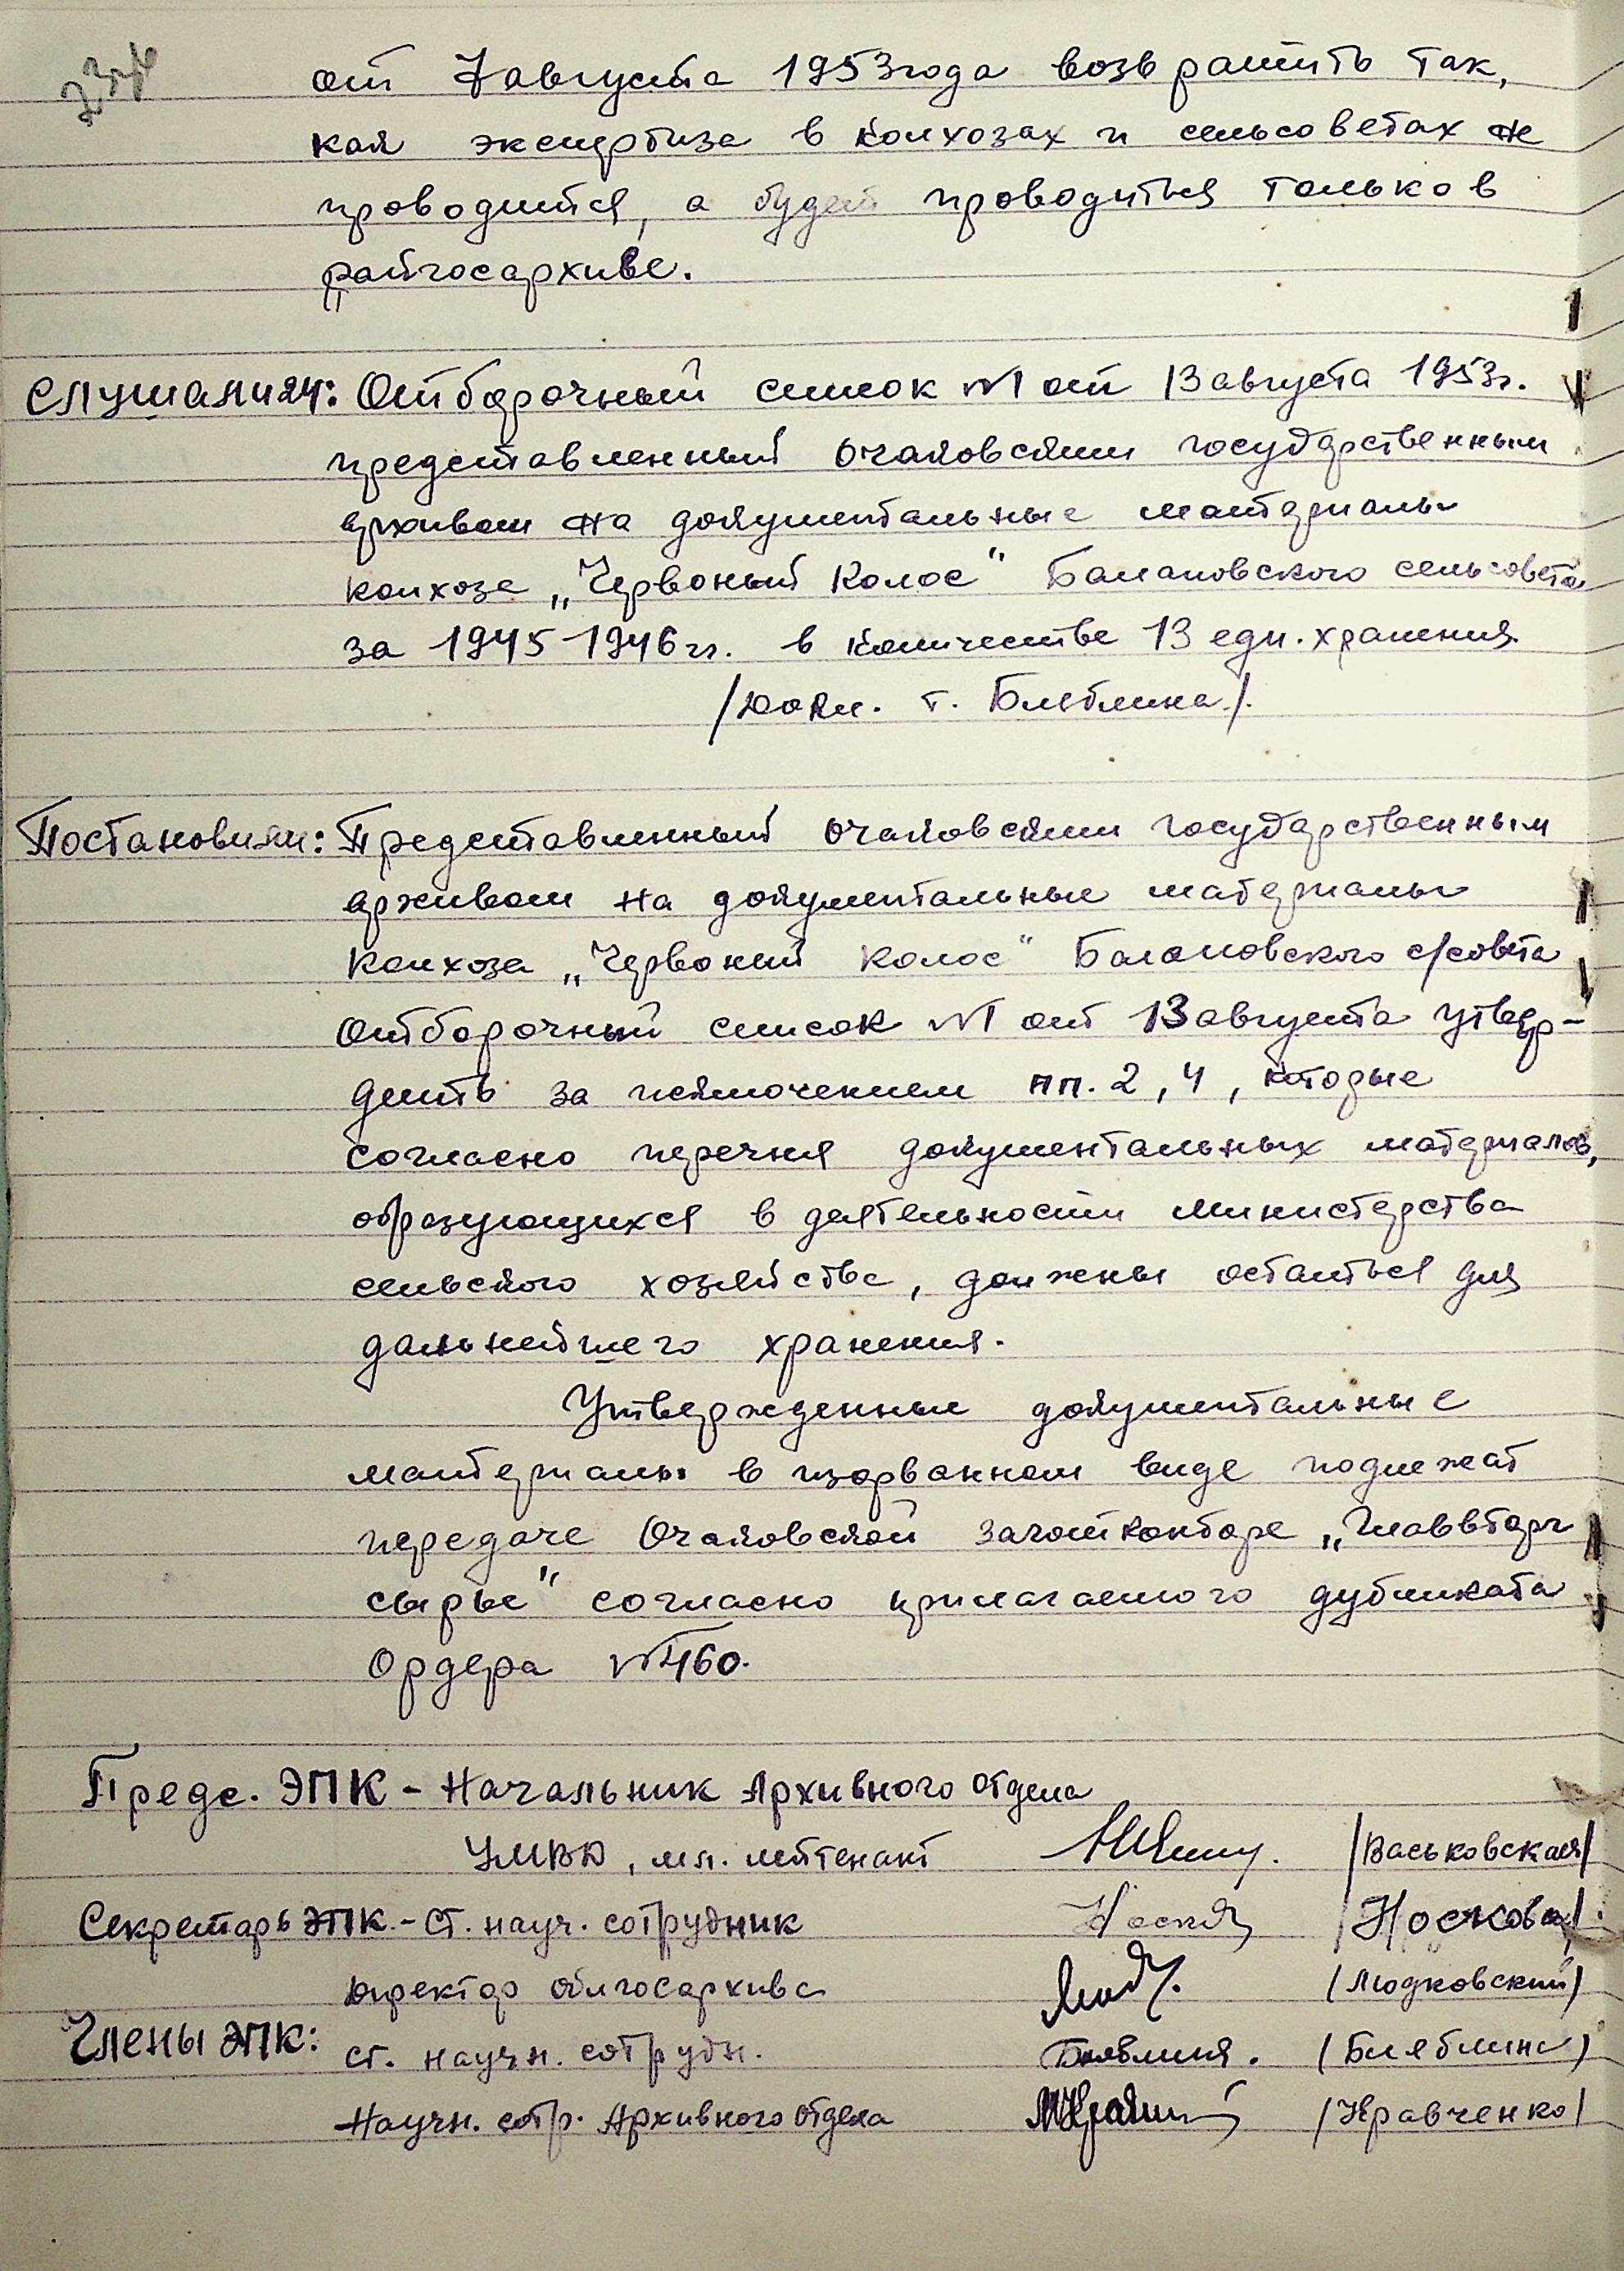 от 7 августа 1953 года возвратить так,
как экспертиза в колхозах и сельсоветах не
проводится, а будет проводиться только в
райгосархиве.
Слушали: Отборочный список №1 от 13 августа 1953 г.
представленный Очаковским государственным
архивом на документальные материалы
колхоза „Червоный Колос" Балановского сельсовета
за 1945-1946 гг. в количестве 13 един. хранения
/Докл. т. Бляблина/.
Постановили: Представленный Очаковским государственным
архивом на документальные материалы
колхоза „Червоный колос" Балановского с/совета
отборочный список №1 от 13 августа утвер-
дить за исключением пп. 2, 4, которые
согласно перечня документальных материалов,
образующихся в деятельности министерства
сельского хозяйства, должны остаться для
дальнейшего хранения.
Утвержденные документальные
материалы в изорванном виде подлежат
передаче Очаковской заготконторе „Главвтор
сырье" согласно прилагаемого дубликата
ордера №460.
Предс. ЭПК - Начальник Архивного отдела
УМВД, мл. лейтенант /Васьковская/
Секретарь ЭПК - ст. науч. сотрудник /Носкова/.
Директор облгосархива (Людковский)
Члены ЭПК: ст. научн. сотрудн. Бляблина. (Бляблина)
Научн. сотр. Архивного отдела /Кравченко/